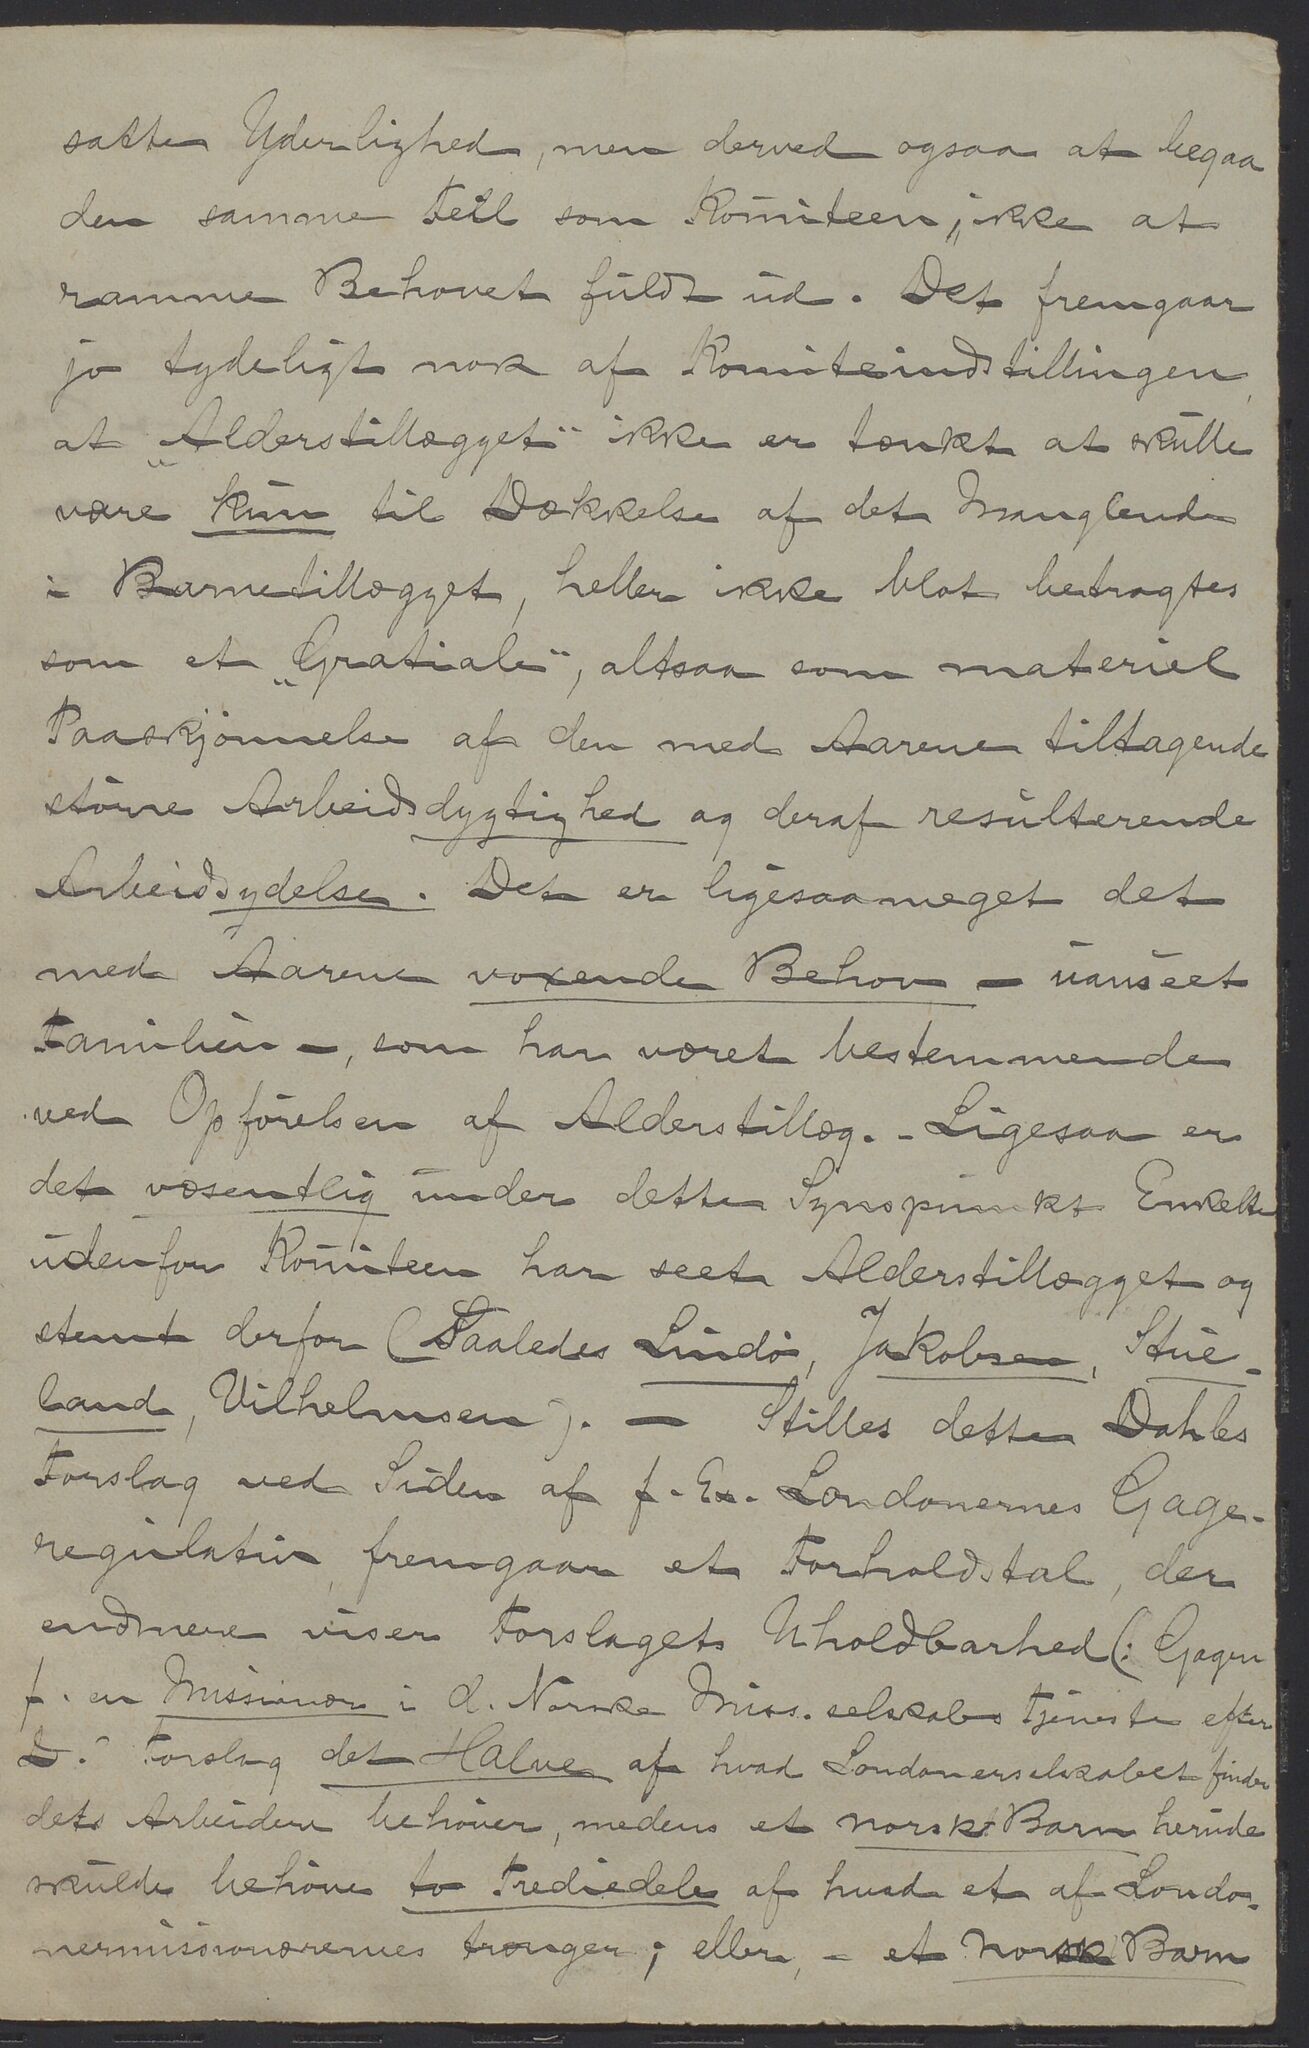 satte Yderlighed, men derved ogsaa at begaa
den samme Feil som Komiteen, ikke at
ramme Behovet fuldt ud. Det fremgaar
jo tydeligt nok af Komiteindstillingen,
at „Alderstillægget“ ikke er tænkt at skulle
være kun til Dækkelse af det Manglende
i Barnetillægget, heller ikke blot betragtes
som et „Gratiale“, altsaa som materiel
Paaskjønnelse af den med Aarene tiltagende
større Arbeidsdygtighed og deraf resulterende
Arbeidsydelse. Det er ligesaameget det
med Aarene voxende Behov – uanseet
Familien –, som har været bestemmende
ved Opførelsen af Alderstillæg. – Ligesaa er
det væsentlig under dette Synspunkt Enkelte
udenfor Komiteen har seet Alderstillægget og
stemt derfor (Saaledes Lindø, Jakobsen, Stue-
land, Vilhelmsen). – Stilles dette Dahles
Forslag ved Siden af f. Ex. Londonernes Gage-
regulativ, fremgaar et Forholdstal, der
endmere viser Forslagets Uholdbarhed (: Gagen
f. en Missionær i d. Norske Miss. selskabs Tjeneste efter
D.s Forslag det Halve af hvad Londonerselskabet finder
dets Arbeidere behøver, medens et norsk Barn herude
skulde behøve to Trediedele af hvad et af Londo-
nermissionærernes trænger; eller, – et norsk Barn